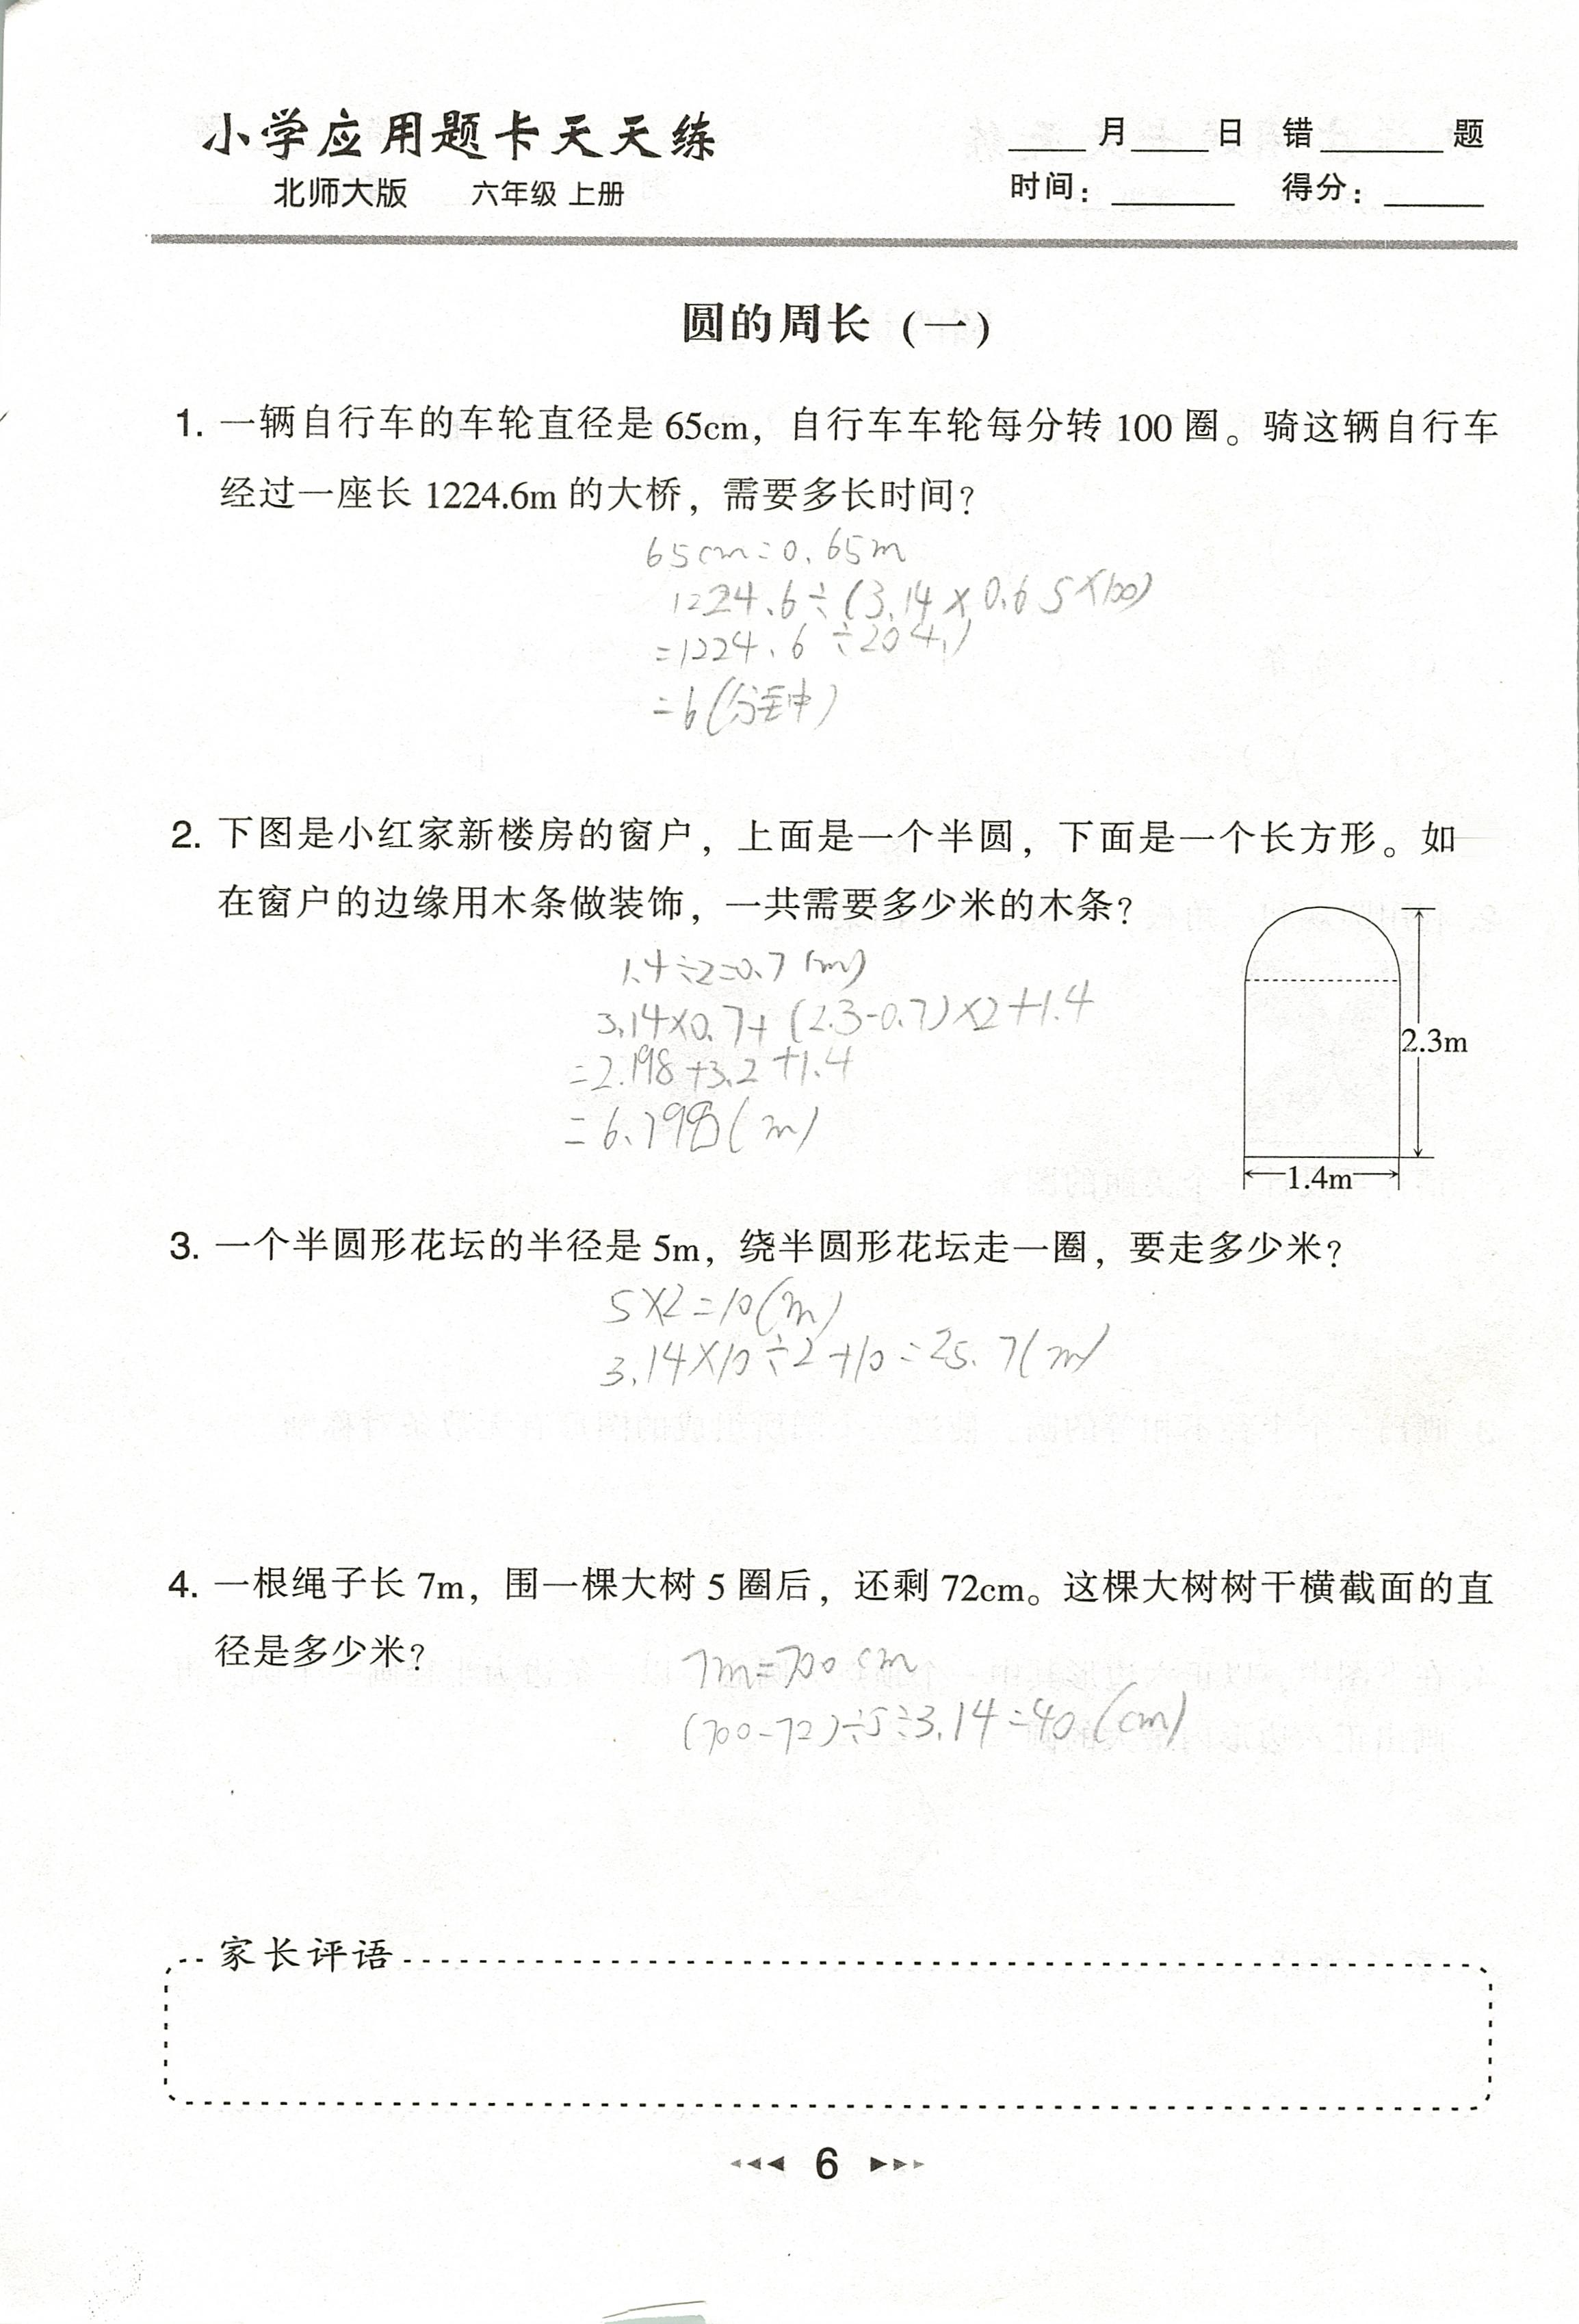 小学应用题卡天天练
北师大版 六年级 上册
____月____日 错______题
时间：______ 得分：_____
圆的周长（一）
1. 一辆自行车的车轮直径是 65cm，自行车车轮每分转 100 圈。骑这辆自行车
经过一座长 1224.6m 的大桥，需要多长时间？
65cm=0.65m
1224.6÷(3.14×0.65×100)
=1224.6÷204.1
=6(分钟)
2. 下图是小红家新楼房的窗户，上面是一个半圆，下面是一个长方形。如
在窗户的边缘用木条做装饰，一共需要多少米的木条？
1.4÷2=0.7(m)
3.14×0.7+(2.3-0.7)×2+1.4
=2.198+3.2+1.4
=6.798(m)
2.3m
1.4m
3. 一个半圆形花坛的半径是 5m，绕半圆形花坛走一圈，要走多少米？
5×2=10(m)
3.14×10÷2+10=25.7(m)
4. 一根绳子长 7m，围一棵大树 5 圈后，还剩 72cm。这棵大树树干横截面的直
径是多少米？
7m=700cm
(700-72)÷5÷3.14=40(cm)
家长评语
6